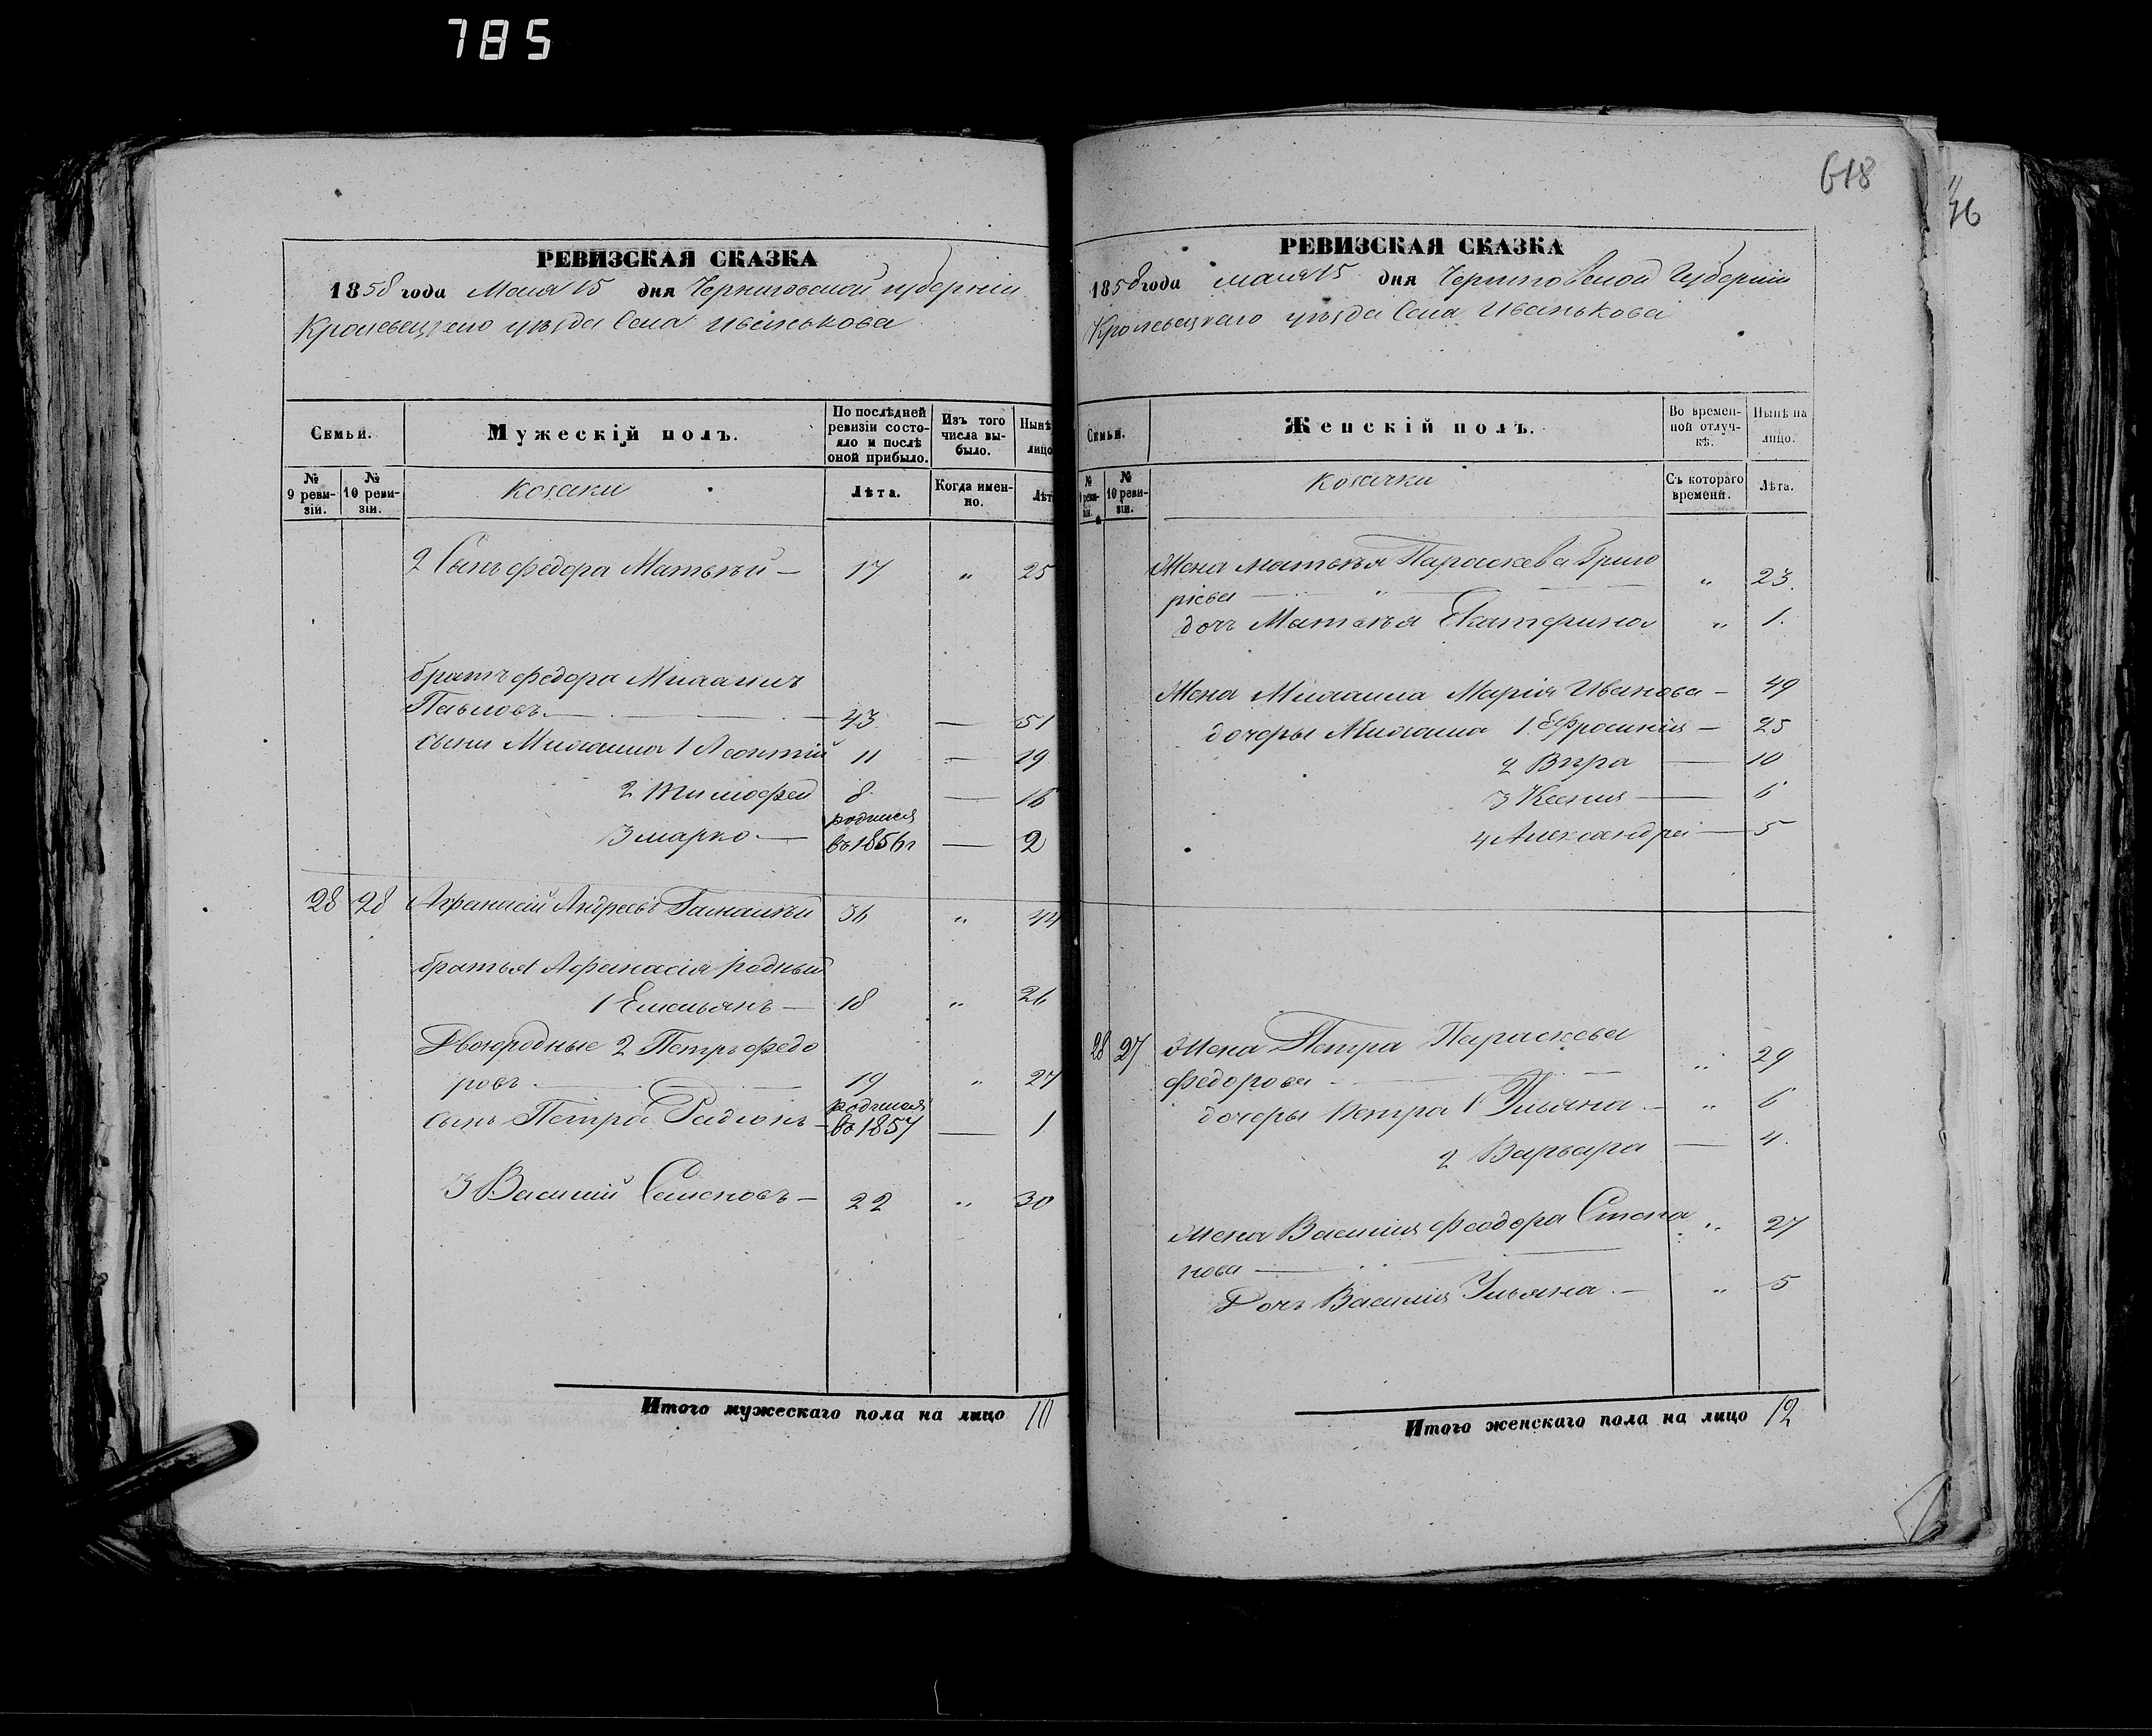 785
РЕВИЗСКАЯ СКАЗКА
1858 года Мая 15 дня Черниговской губерніи
Кролевецкаго уѣзда Села Иванькова
Семьи.
Мужескій полъ.
По послѣдней ревизіи состояло и послѣ оной прибыло.
Изъ того числа выбыло.
Нынѣ
лицо
№ 9 ревизіи.
№ 10 ревизіи.
козаки
Лѣта.
Когда именно.
Лѣт
2 Сынъ Федора Матвѣй — 17 „ 25
братъ Федора Михаилъ
Павловъ — 43 — 51
сыни Михаила 1 Леонтій 11 — 19
2 Тимофей 8 — 16
родился
3 марко — въ 1856 г — 2
28 28 Афанасій Андреевъ 36 „ 44
братья Афанасія родный
1 Емельянъ — 18 „ 26
Двоюродные 2 Петръ Федо
ровъ — 19 „ 27
родился
сынъ Петра Радіонъ — въ 1857 — 1
3 Василій Семеновъ — 22 „ 30
Итого мужескаго пола на лицо 10
618
46
РЕВИЗСКАЯ СКАЗКА
1858 года мая 15 дня Черниговской Губерніи
Кролевецкаго уѣзда Села Иванькова
Семьи.
Женскій полъ.
Во временной отлучкѣ.
Нынѣ на лицо.
№ реви- зіи.
№ 10 ревизіи.
козачки
Съ котораго времени.
Лѣта.
Жена матвѣя Параскева Григо
рьева — „ 23.
дочь Матвѣя Екатерина „ 1.
Жена Михаила Марія Иванова — 49
дочеры Михаила 1 Ефросинія — 25
2 Вѣра — 10
3 Ксенія — 6
4 Александра — 5
28 27 Жена Петра Параскева
Федорова — „ 29
дочеры Петра 1 Ульяна — „ 6
2 Варвара — 4.
Жена Василія Феодора Степа „ 27
нова —
Дочь Василія Ульяна — „ 5
Итого женскаго пола на лицо 12